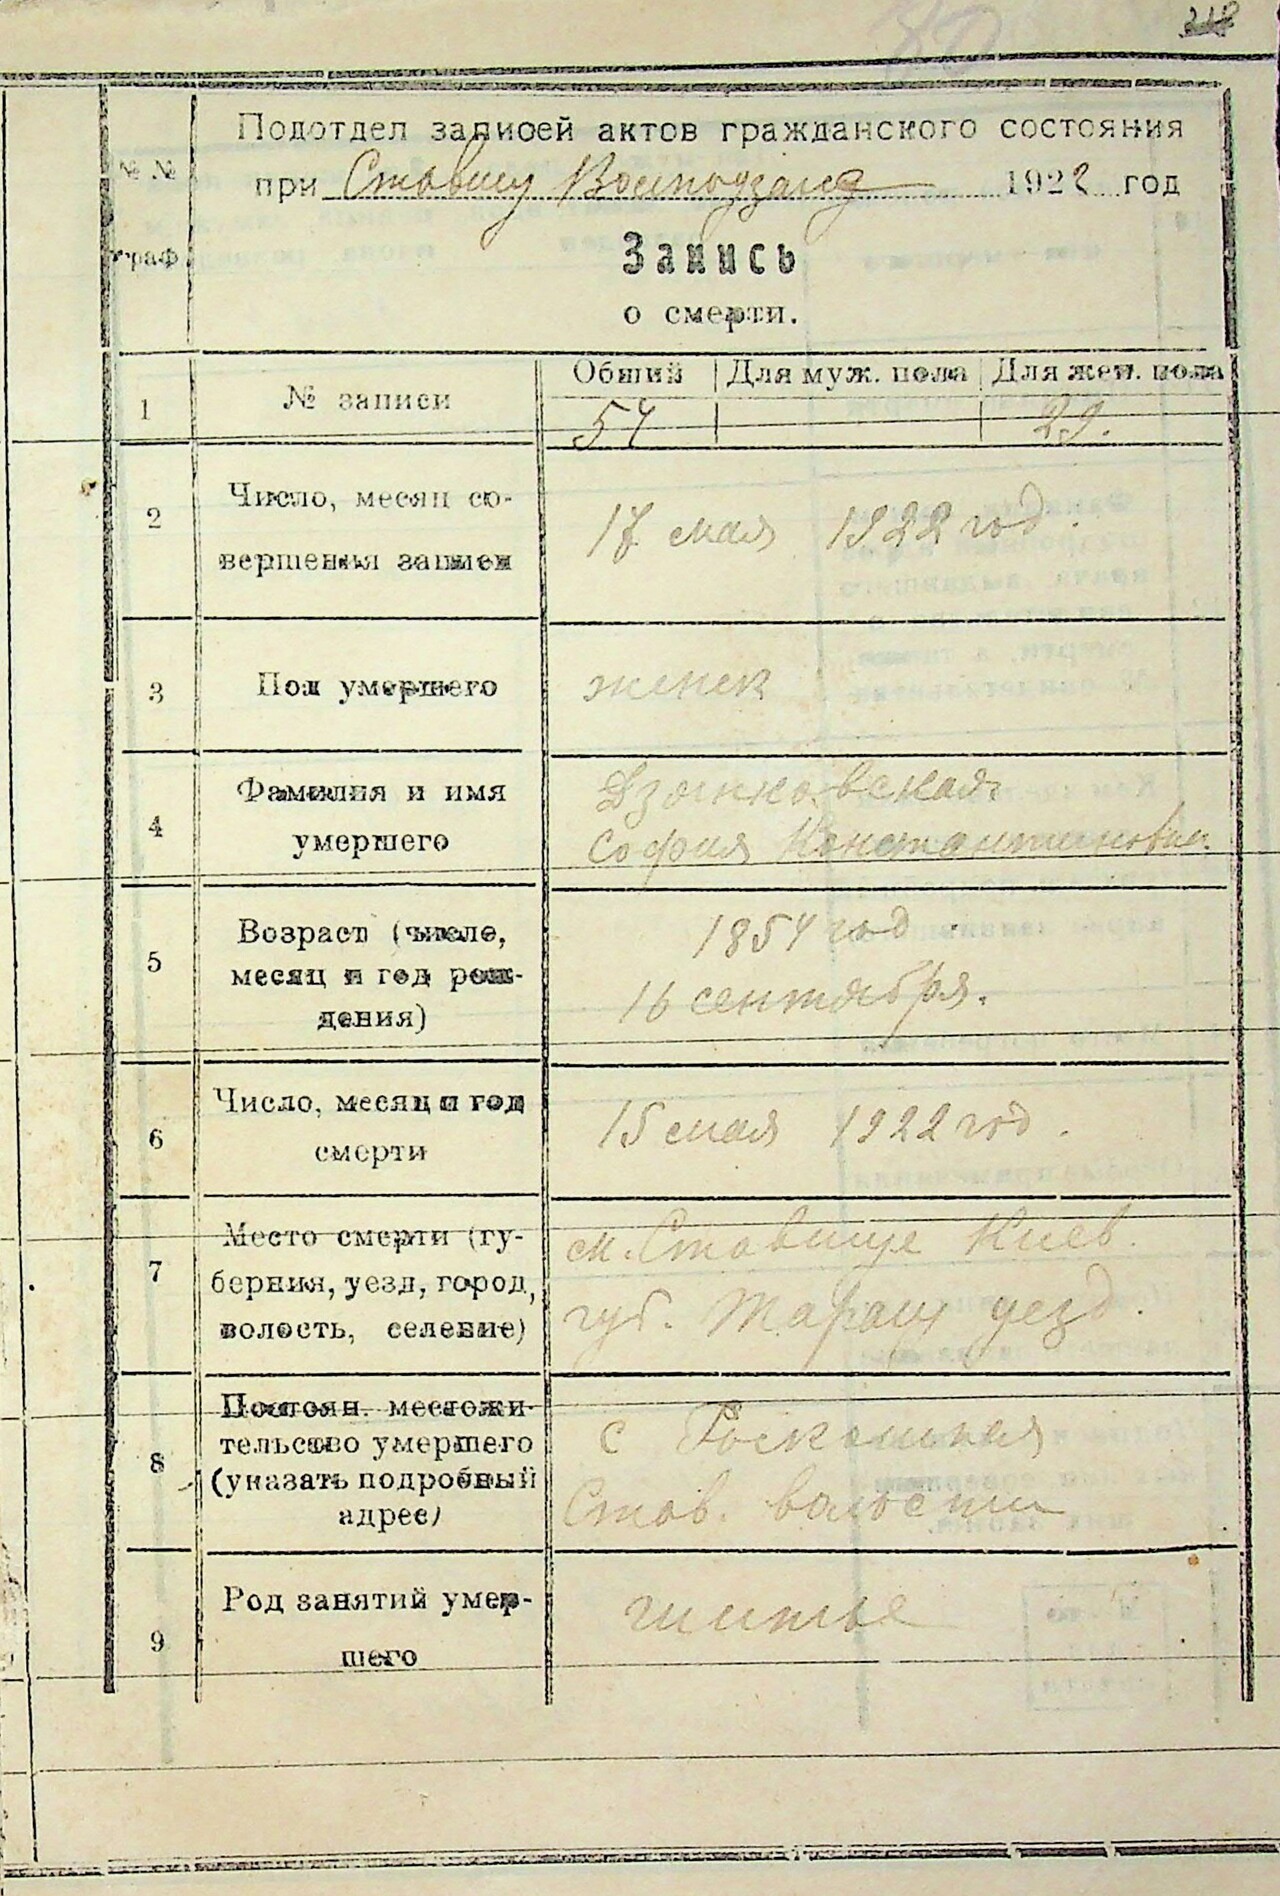 218
Подотдел записей актов гражданского состояния
при Ставищ 1922 год
№ №
граф
Запись
о смерти.
Общий Для муж. пола Для жен. пола
1 № записи 54 29.
2 Число, месяц со-
вершения записи
17 мая 1922 год.
3 Пол умершего женск
4 Фамилия и имя
умершего
Дзюнковская
София Константиновн.
5 Возраст (число,
месяц и год рож-
дения)
1854 год.
16 сентября.
6 Число, месяц и год
смерти
15 мая 1922 год.
7 Место смерти (гу-
берния, уезд, город,
волость, селение)
м. Ставище Киев.
губ. Таращ уезд.
8 Постоян. местожи-
тельство умершего
(указать подробный
адрес)
с Роскошная
Став. волости
9 Род занятий умер-
шего
шитье